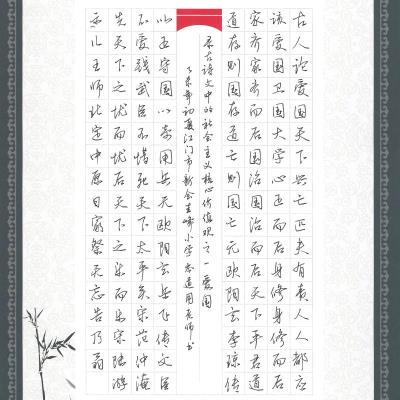 古人论爱国天下兴亡匹夫有责人人都应
该爱国卫国大学心正而后身修身修而后
家齐家齐而后国治国治而后天下平君道
道存则国存道亡则国亡元欧阳玄李琼传
录古诗文中的社会主义核心价值观之一爱国
年初夏江门市新会圭峰小学老师书
以正守国以奇用兵元欧阳玄岳飞传文臣
不爱钱武臣不惜死天下太平矣宋范仲淹
先天下之忧而忧后天下之乐而乐宋陆游
示儿王师北定中原日家祭无忘告乃翁